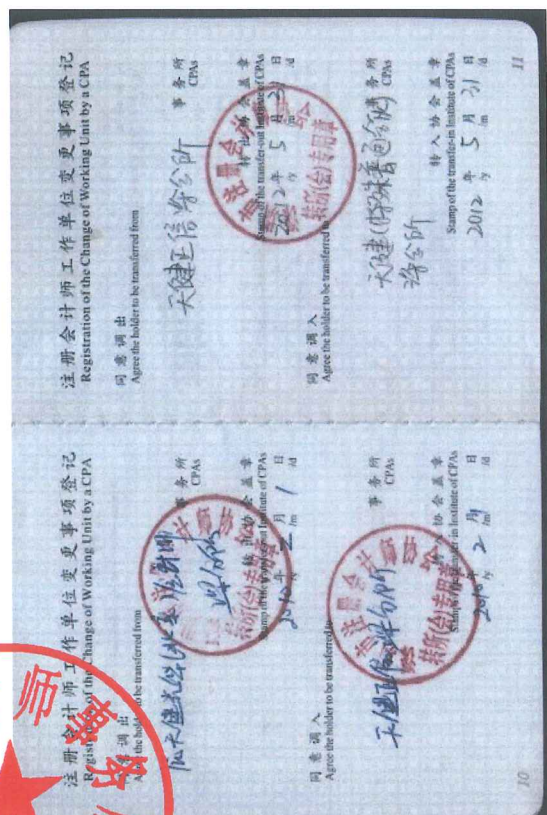 注册会计师工作单位变更事项登记
Registration of the Change of Working Unit by a CPA
同意调出
Agree the holder to be transferred from
事务所
CPAs
转出协会盖章
Stamp of the transfer-out Institute of CPAs
2010年 2月 1日
/y /m /d
同意调入
Agree the holder to be transferred to
事务所
CPAs
转入协会盖章
Stamp of the transfer-in Institute of CPAs
2010年 2月 日
/y /m /d
转所(会)专用章
10
注册会计师工作单位变更事项登记
Registration of the Change of Working Unit by a CPA
同意调出
Agree the holder to be transferred from
天健正信 分所
事务所
CPAs
转出协会盖章
Stamp of the transfer-out Institute of CPAs
2012年 5月 31日
/y /m /d
转所(会)专用章
同意调入
Agree the holder to be transferred to
天健(特殊普通合伙)
分所
事务所
CPAs
转入协会盖章
Stamp of the transfer-in Institute of CPAs
2012年 5月 31日
/y /m /d
11